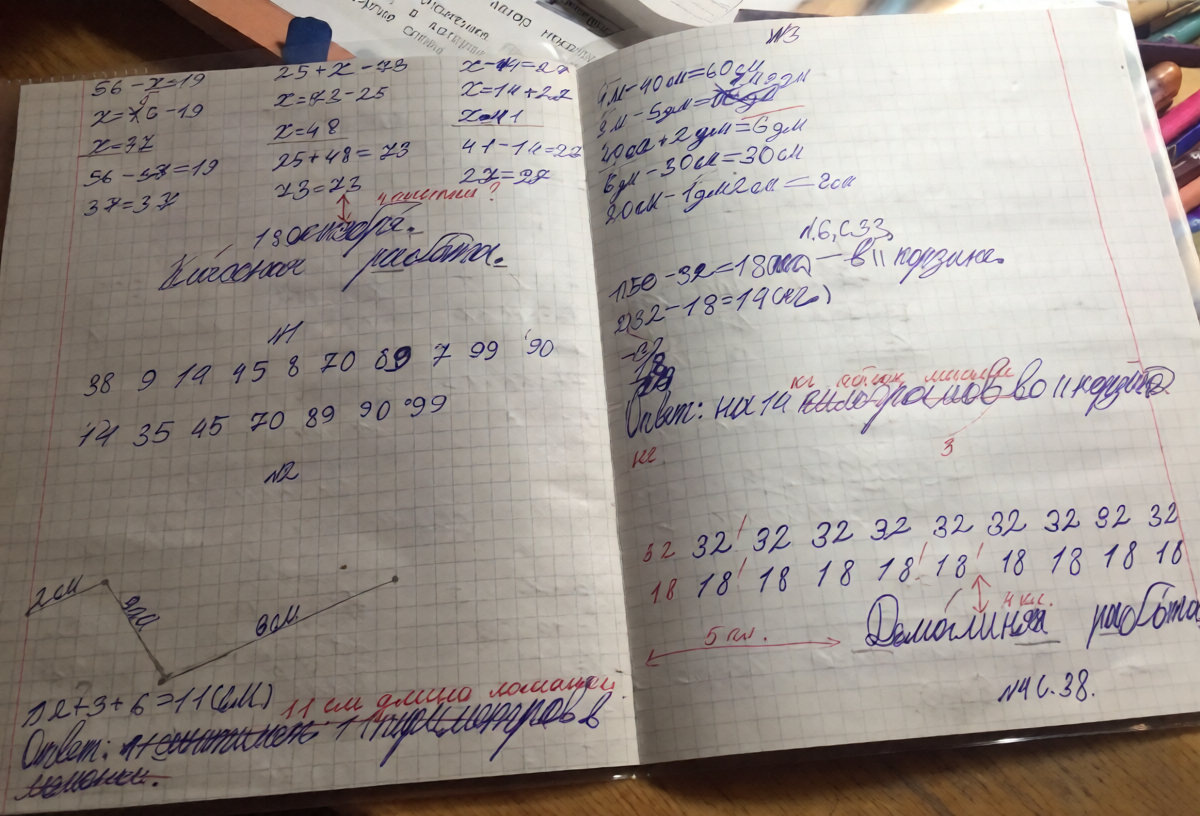 56 - x = 19
x = 56 - 19
x = 37
56 - 37 = 19
37 = 37
25 + x - 73
x = 73 - 25
x = 48
25 + 48 = 73
73 = 73
x - 14 = 27
x = 14 + 27
x = 41
41 - 14 = 27
27 = 27
4 клетки?
13 октября.
Классная работа.
№1
38 9 14 45 8 70 89 7 99 90
14 35 45 70 89 90 99
№2
2см
3см
6см
1) 2 + 3 + 6 = 11 (см)
11 см длина ломаной.
Ответ: 11
ломаной.
№3
4м - 40см = 60см
3м - 5дм =
40см + 2дм = 6дм
6дм - 30см = 30см
20см - 1дм2см = 2см
№6, с33.
1) 50 - 32 = 18 - в II корзине.
2) 32 - 18 = 14 (кг)
кг яблок меньше
Ответ: на 14 килограмов во II корзине
кг
3
32 32 32 32 32 32 32 32 32 32
18 18 18 18 18 18 18 18 18 18
4 кл.
5 кл.
Домашняя работа
№4 с. 38.